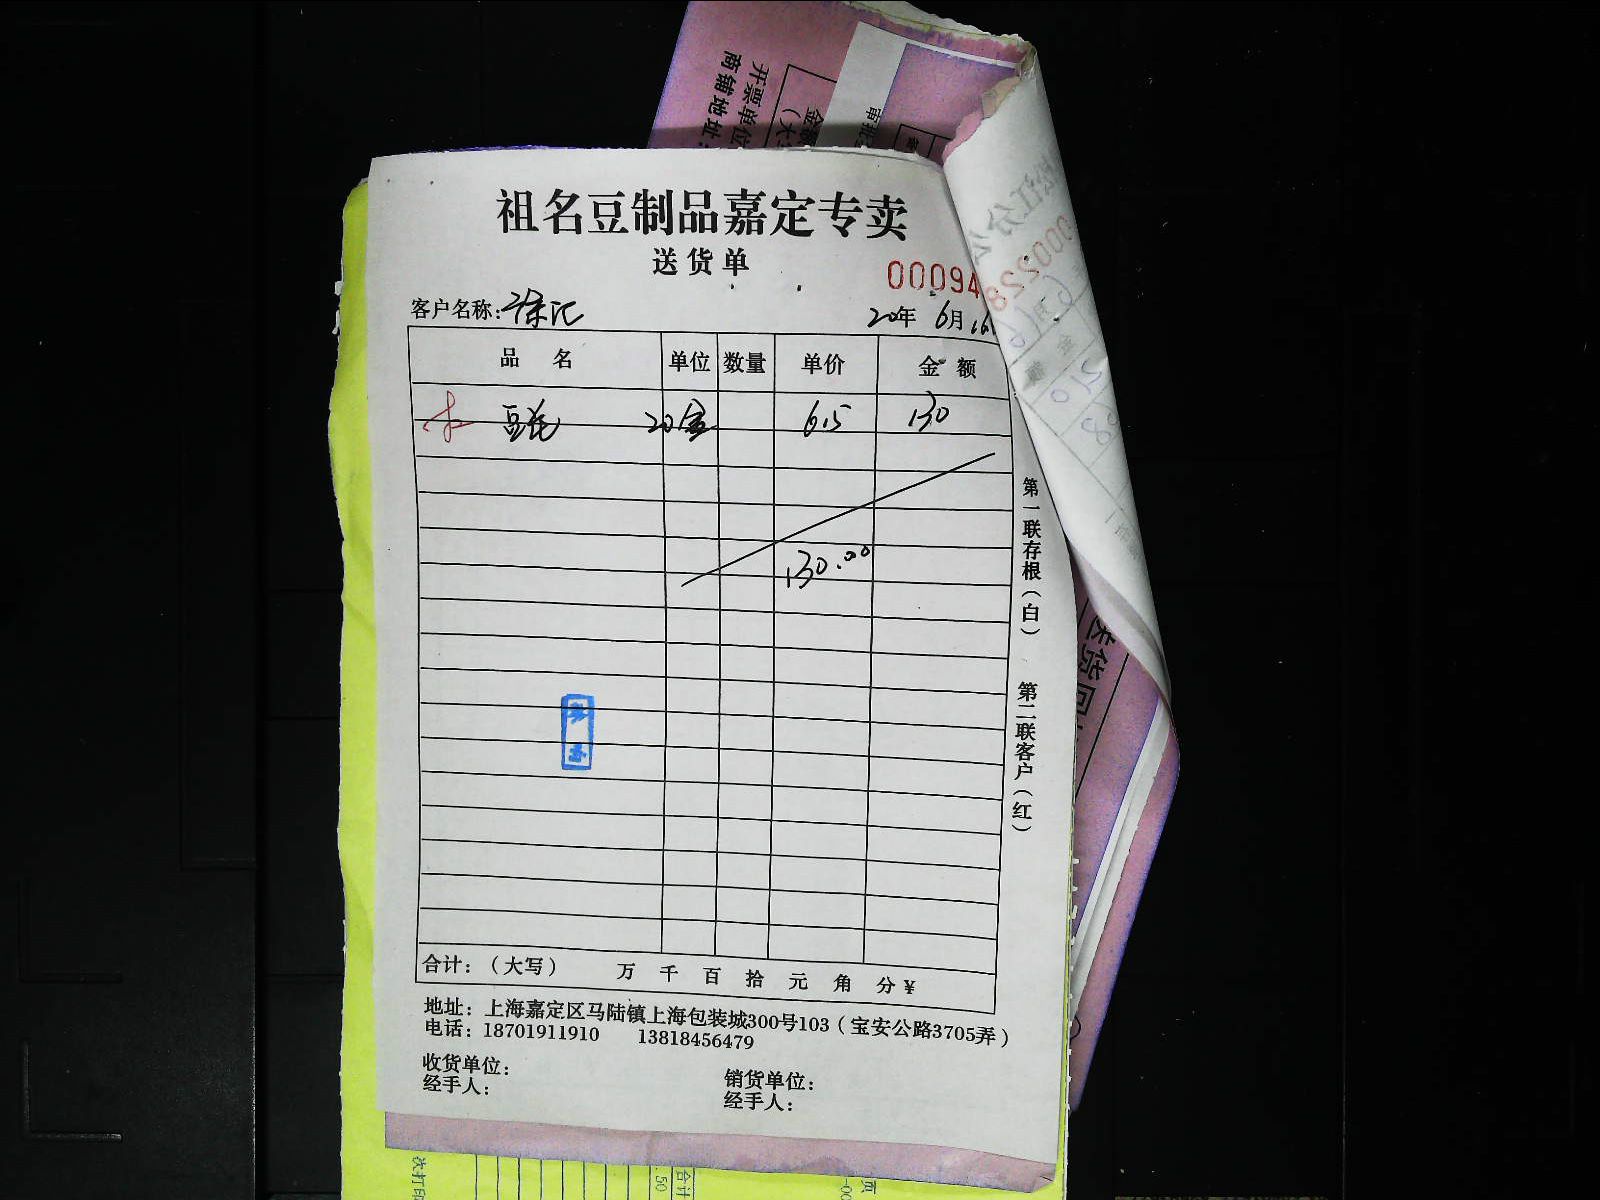 祖名豆制品嘉定专卖
送货单
00094
客户名称：徐汇
20年 6月 16
品 名 单位 数量 单价 金 额
20盒 6.5 130
130.00
合计：（大写） 万 千 百 拾 元 角 分 ¥
地址：上海嘉定区马陆镇上海包装城300号103（宝安公路3705弄）
电话：18701911910 13818456479
收货单位：
经手人：
销货单位：
经手人：
第一联存根（白） 第二联客户（红）
开票单位
商铺地址：
金额
（大
审批
000228
送货回
次打印
合计
.50
页